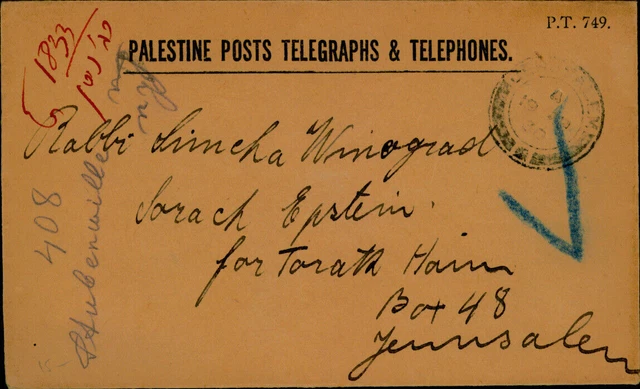 P.T. 749.
PALESTINE POSTS TELEGRAPHS & TELEPHONES.
1833
Rabbi Simcha Winograd
Sorach Epstein.
for Torath Haim
Box 48
Jerusalem
408
Stubenville